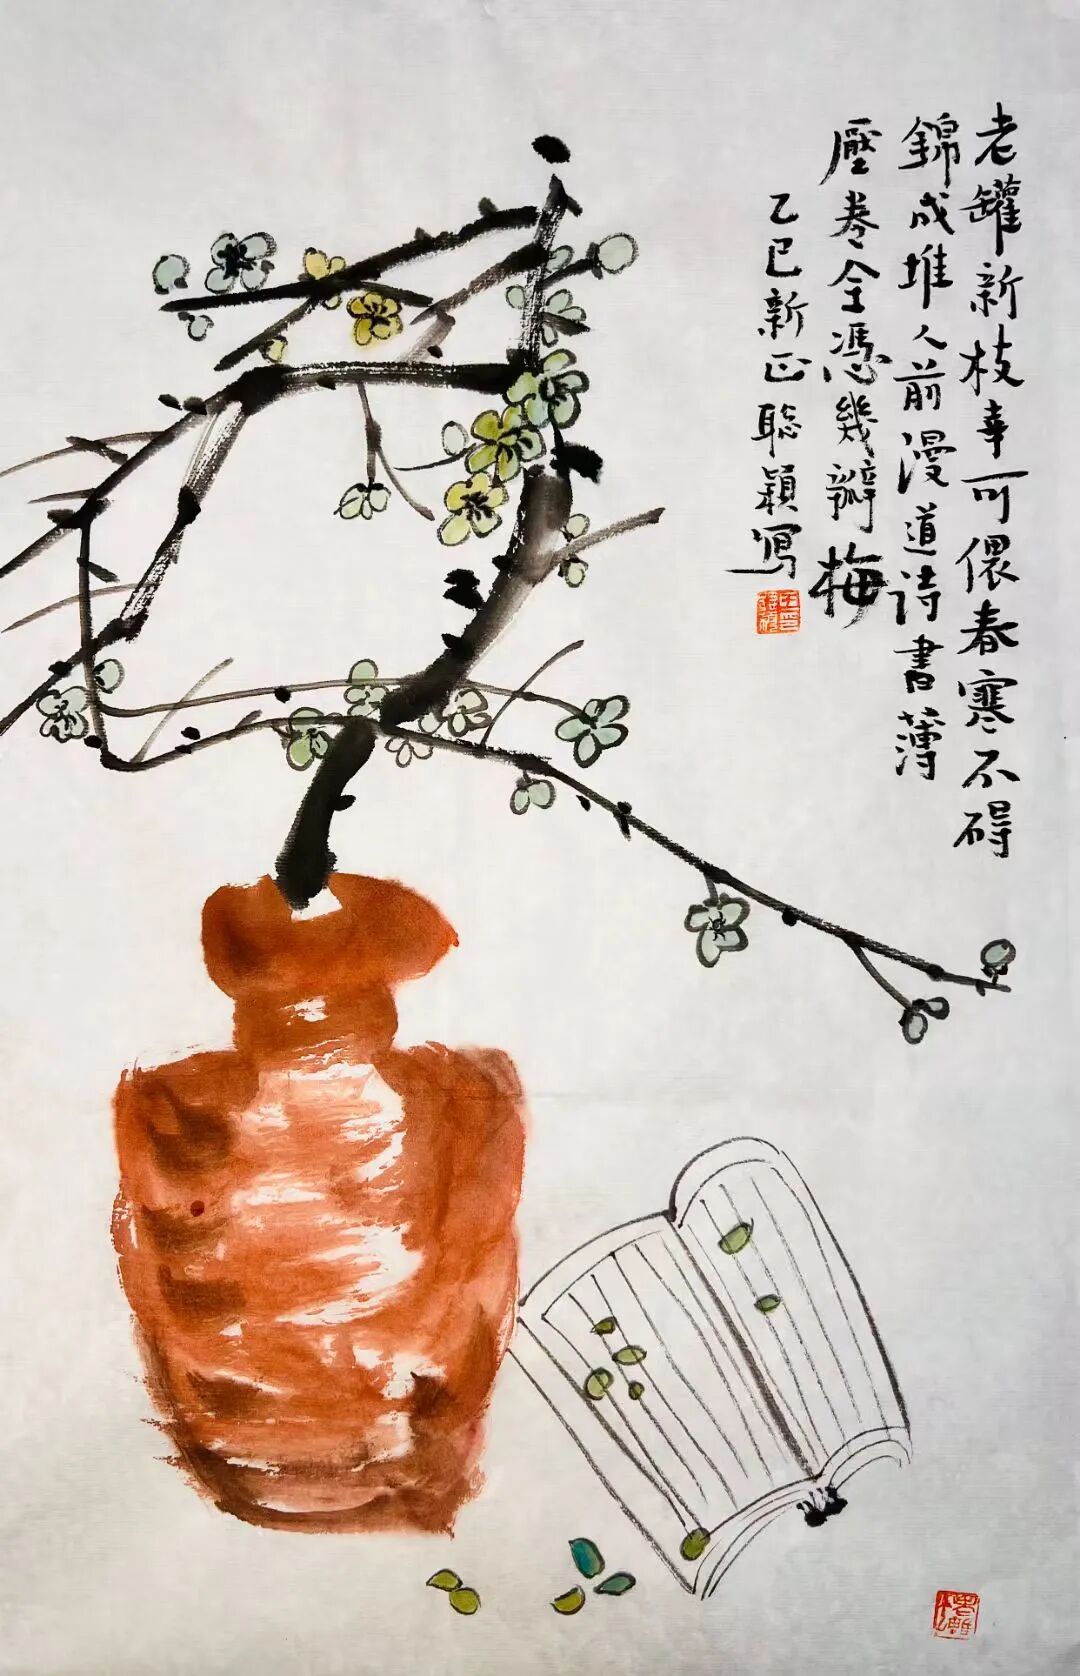 老罐新枝幸可偎春寒不碍
錦成堆人前漫道诗書薄
壓卷全憑幾瓣梅
乙巳新正聡穎寫